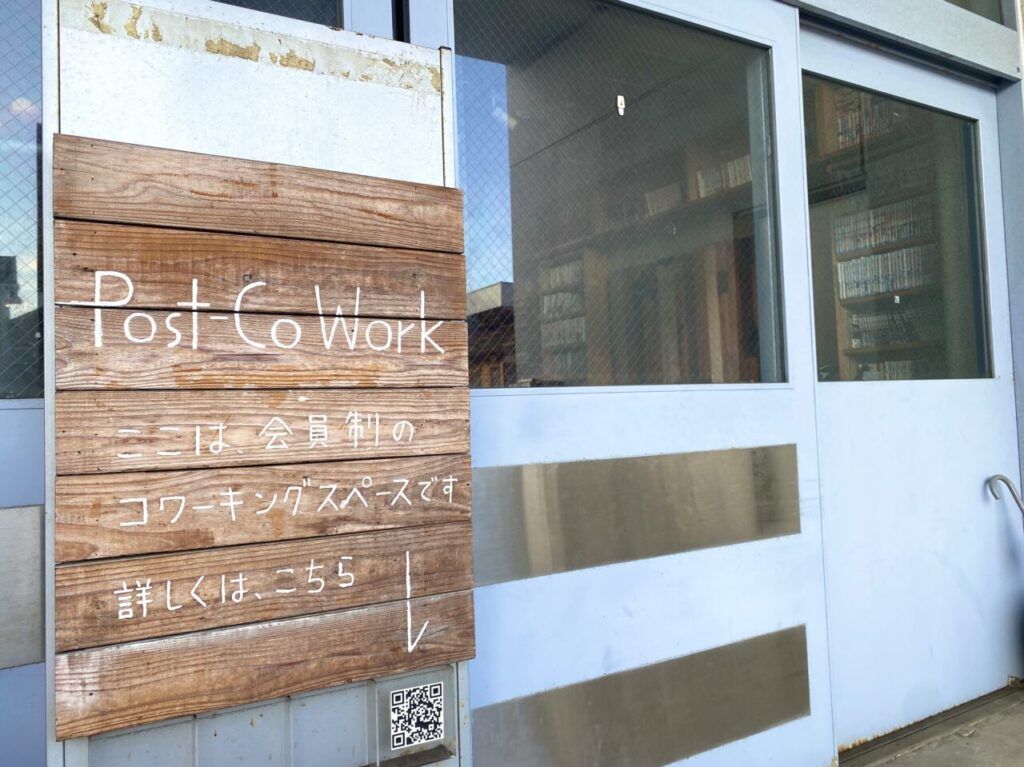 Post-Co Work
ここは、会員制の
コワーキングスペースです
詳しくは、こちら